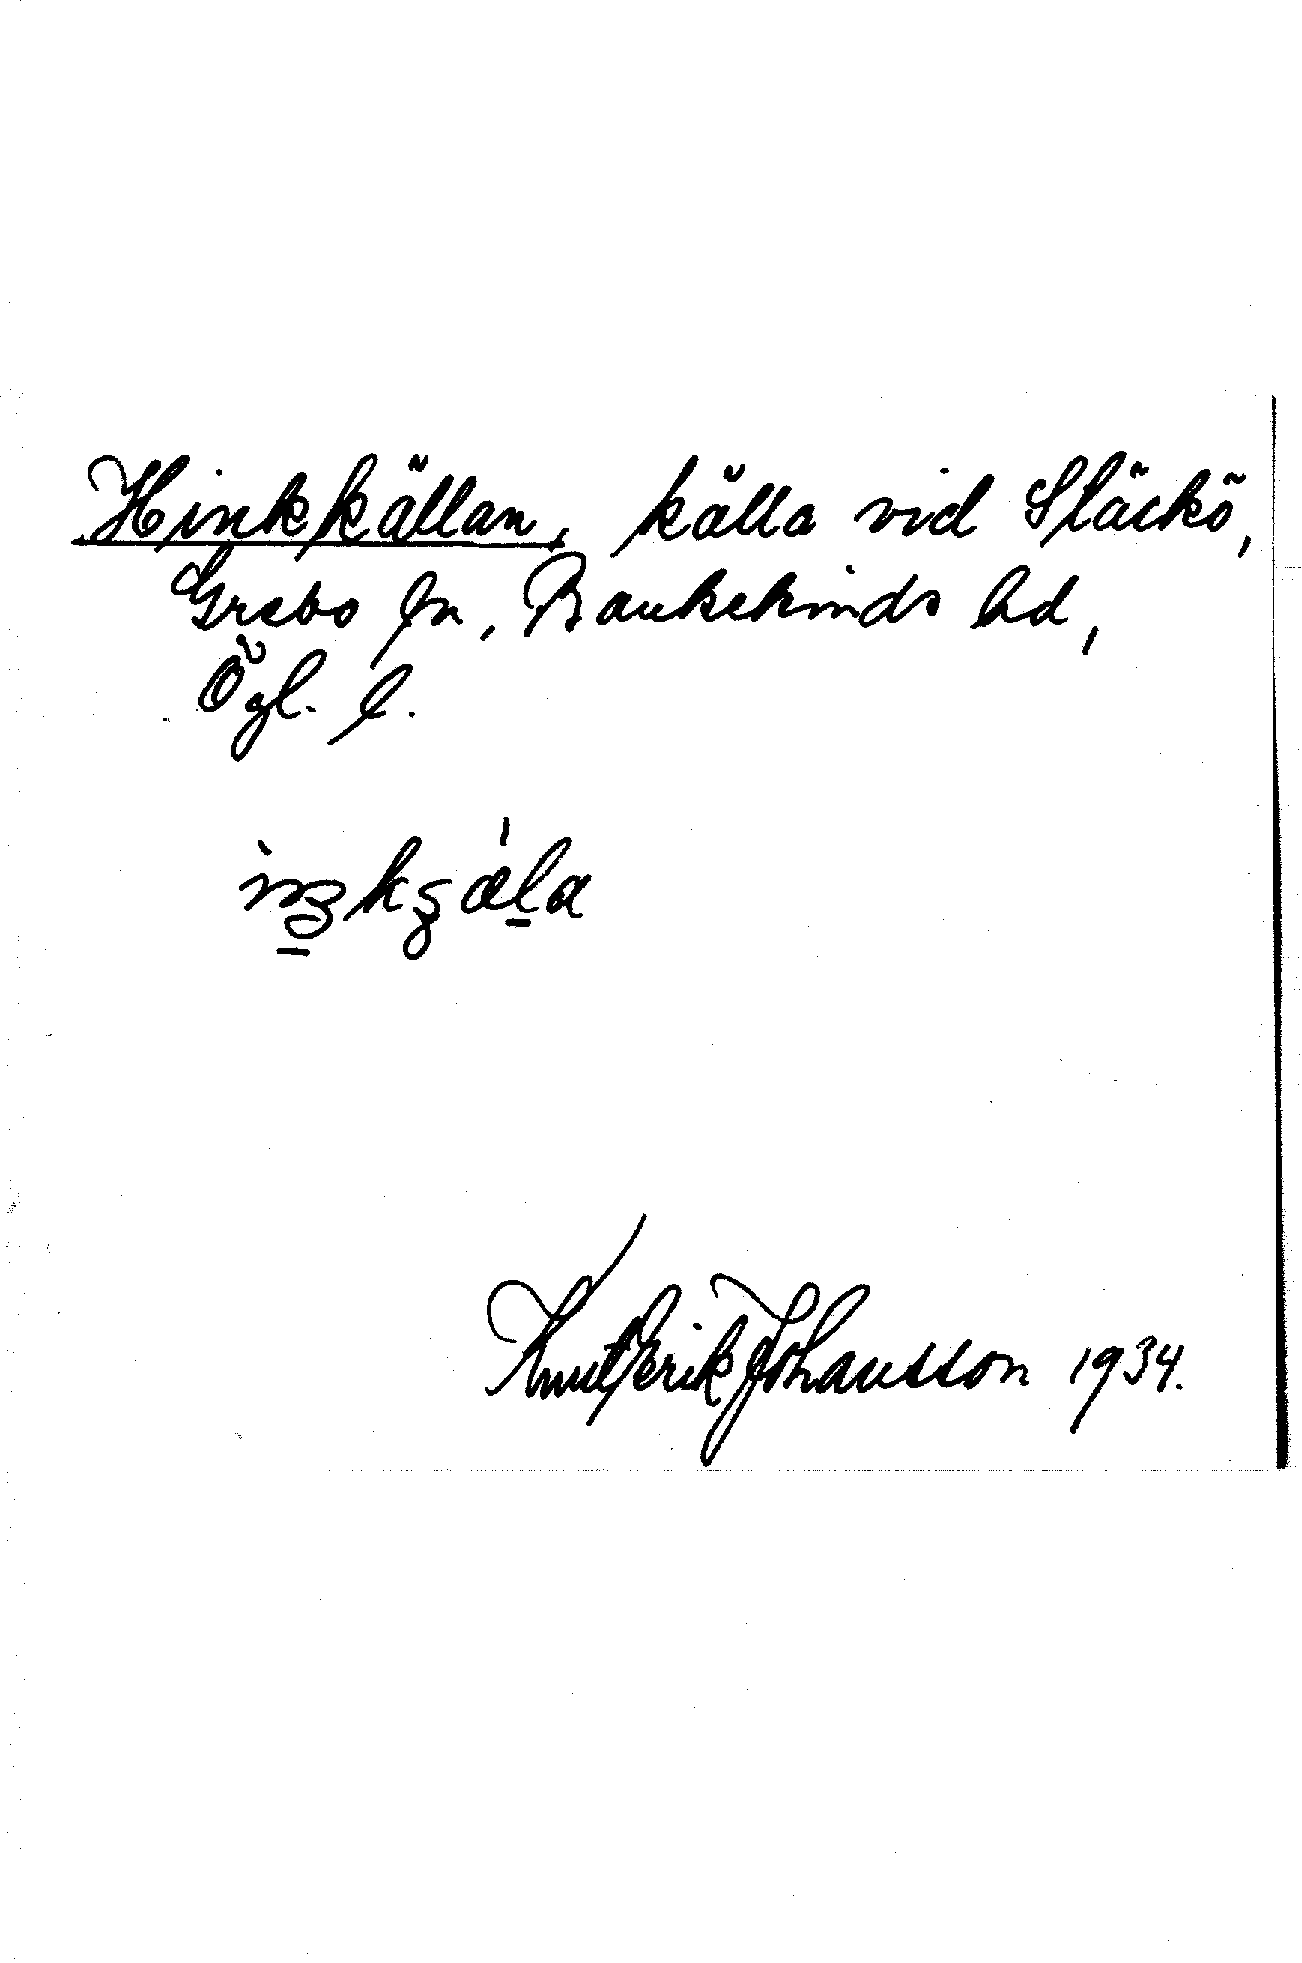 Hinkkällan, källa vid Släckö,
Grebo sn, Bankekinds hd,
Ögl. l.
Knut Erik Johansson 1934.